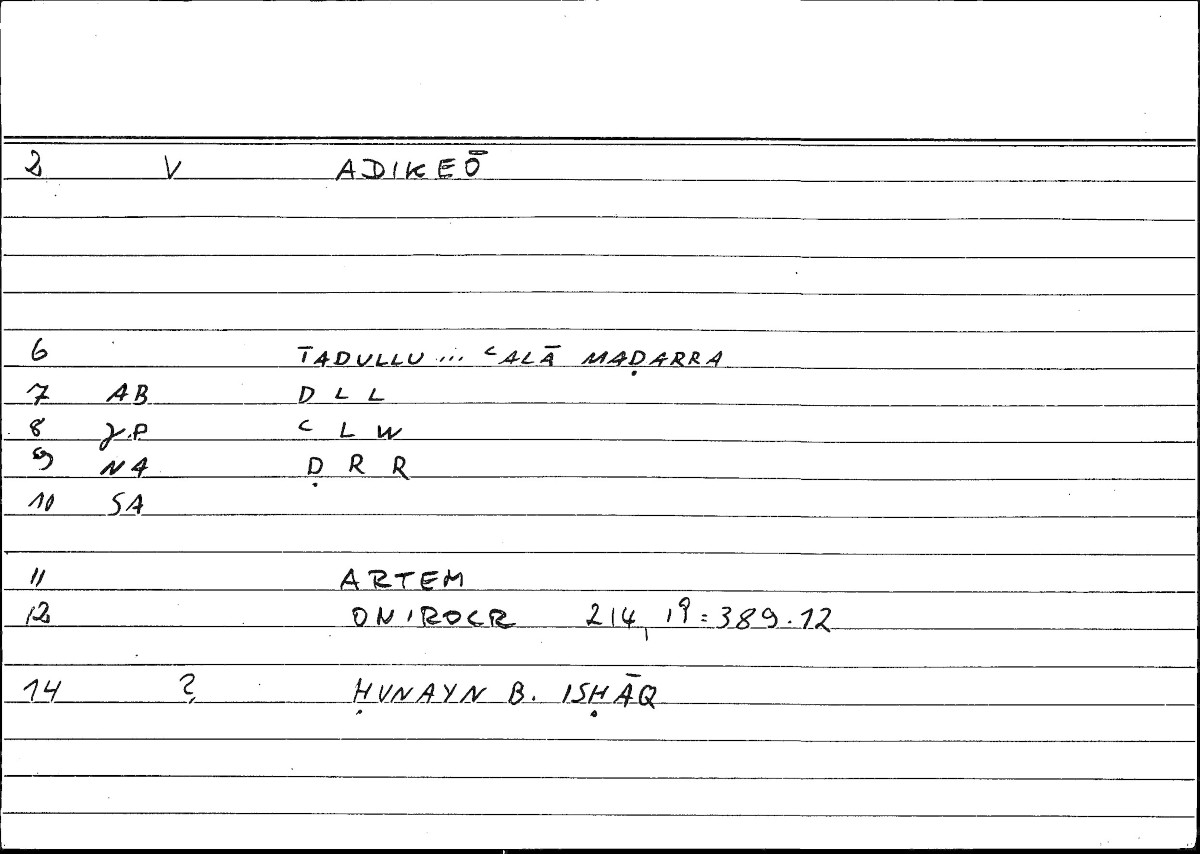 2 V ADIKEŌ
6 TADULLU ... ʿALĀ MAḌARRA
7 AB D L L
8 γ.P ʿ L W
9 NA Ḍ R R
10 SA
11 ARTEM
12 ONIROCR 214, 19 = 389.12
14 ? ḤUNAYN B. ISḤĀQ